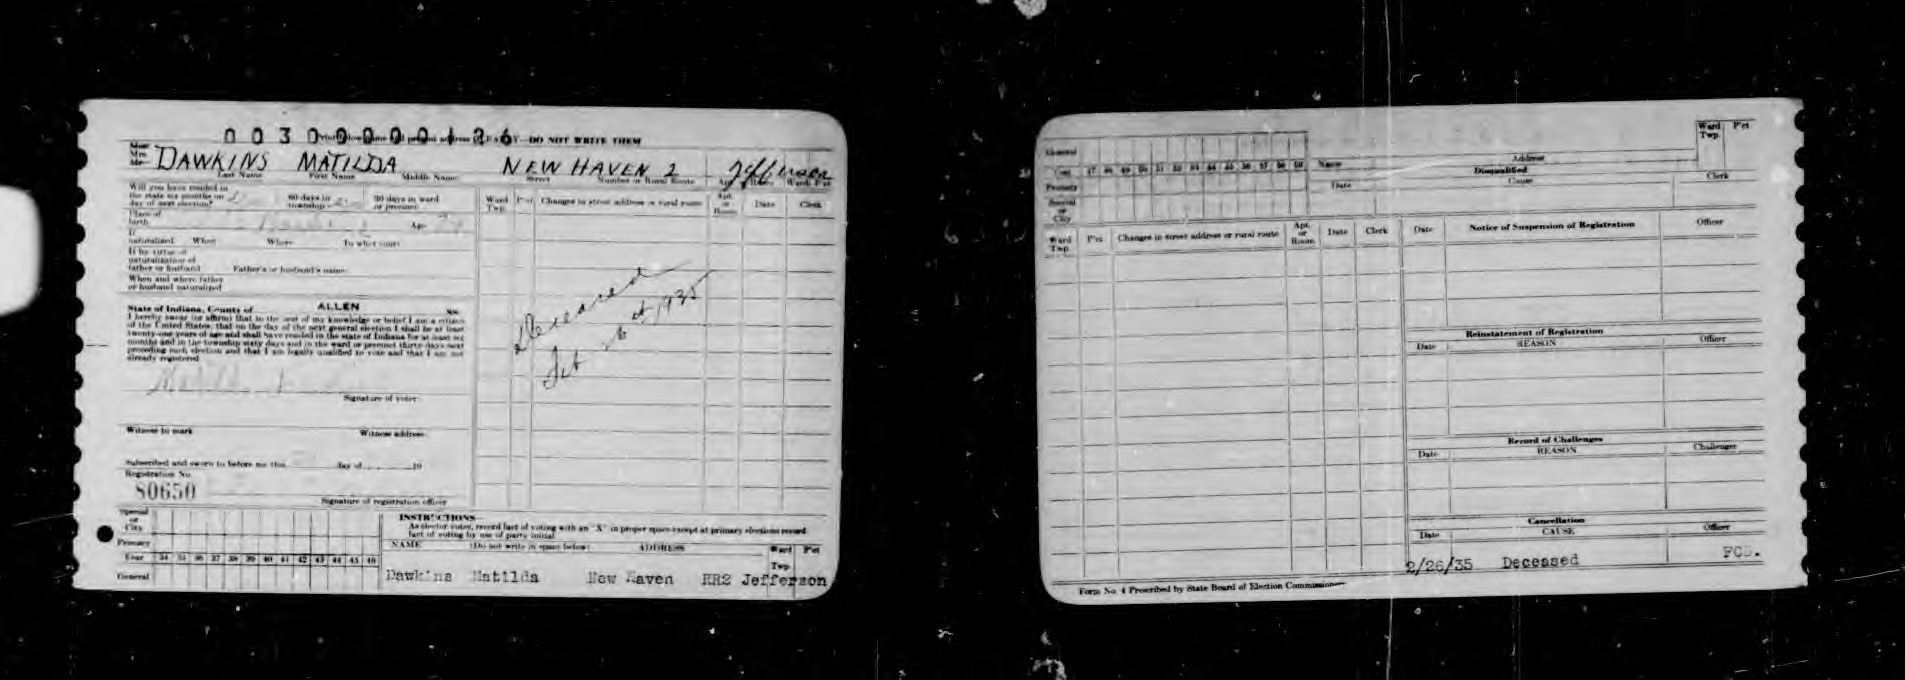 00300000126
DO NOT WRITE THEM
Miss
Mrs.
Mr. DAWKINS MATILDA NEW HAVEN 2 Jefferson
Last Name First Name Middle Name Street Number or Rural Route Apt. Room Ward Pct
Will you have resided in
the state six months on
day of next election?
60 days in
township
30 days in ward
or precinct
Place of
birth
Age
If
naturalized When Where In what court
If by virtue of
naturalization of
father or husband Father's or husband's name
When and where father
or husband naturalized
State of Indiana, County of ALLEN ss:
I hereby swear (or affirm) that to the best of my knowledge or belief I am a citizen
of the United States, that on the day of the next general election I shall be at least
twenty-one years of age and shall have resided in the state of Indiana for at least six
months and in the township sixty days and in the ward or precinct thirty days next
preceding such election and that I am legally qualified to vote and that I am not
already registered
Signature of voter
Witness to mark Witness address
Subscribed and sworn to before me this day of 19
Registration No.
80650
Signature of registration officer
Ward
Twp. Pct Changes in street address or rural route Apt.
or
Room Date Clerk
Deceased
Special
or
City
Primary
Year 34 35 36 37 38 39 40 41 42 43 44 45 46
General
INSTRUCTIONS
As elector votes, record fact of voting with an "X" in proper space except at primary elections record
fact of voting by use of party initial
NAME (Do not write in space below) ADDRESS Ward
Twp. Pct
Dawkins Matilda New Haven RR2 Jefferson
General
Year 47 48 49 50 51 52 53 54 55 56 57 58 59
Primary
Special
or
City
Name Address Ward
Twp. Pct
Disqualified
Date Cause Clerk
Ward
Twp. Pct Changes in street address or rural route Apt.
or
Room Date Clerk
Date Notice of Suspension of Registration Officer
Reinstatement of Registration
Date REASON Officer
Record of Challenges
Date REASON Challenger
Cancellation
Date CAUSE Officer
2/26/35 Deceased FCD.
Form No. 4 Prescribed by State Board of Election Commissioners